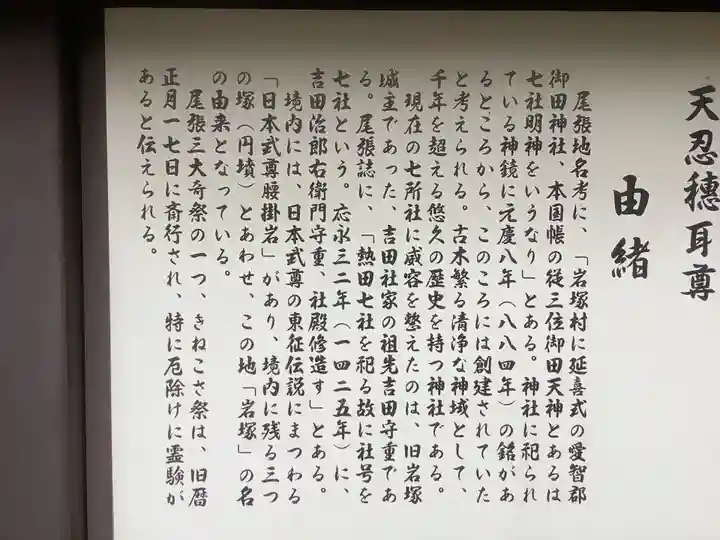 天忍穂耳尊
由緒
尾張地名考に、「岩塚村に延喜式の愛智郡
御田神社、本国帳の従三位御田天神とあるは
七社明神をいうなり」とある。神社に祀られ
ている神鏡に元慶八年（八八四年）の銘があ
るところから、このころには創建されていた
と考えられる。古木繁る清浄な神域として、
千年を超える悠久の歴史を持つ神社である。
現在の七所社に威容を整えたのは、旧岩塚
城主であった、吉田社家の祖先吉田守重であ
る。尾張誌に、「熱田七社を祀る故に社号を
七社という。応永三二年（一四二五年）に、
吉田治郎右衛門守重、社殿修造す」とある。
境内には、日本武尊の東征伝説にまつわる
「日本武尊腰掛岩」があり、境内に残る三つ
の塚（円墳）とあわせ、この地「岩塚」の名
の由来となっている。
尾張三大奇祭の一つ、きねこさ祭は、旧暦
正月一七日に斎行され、特に厄除けに霊験が
あると伝えられる。